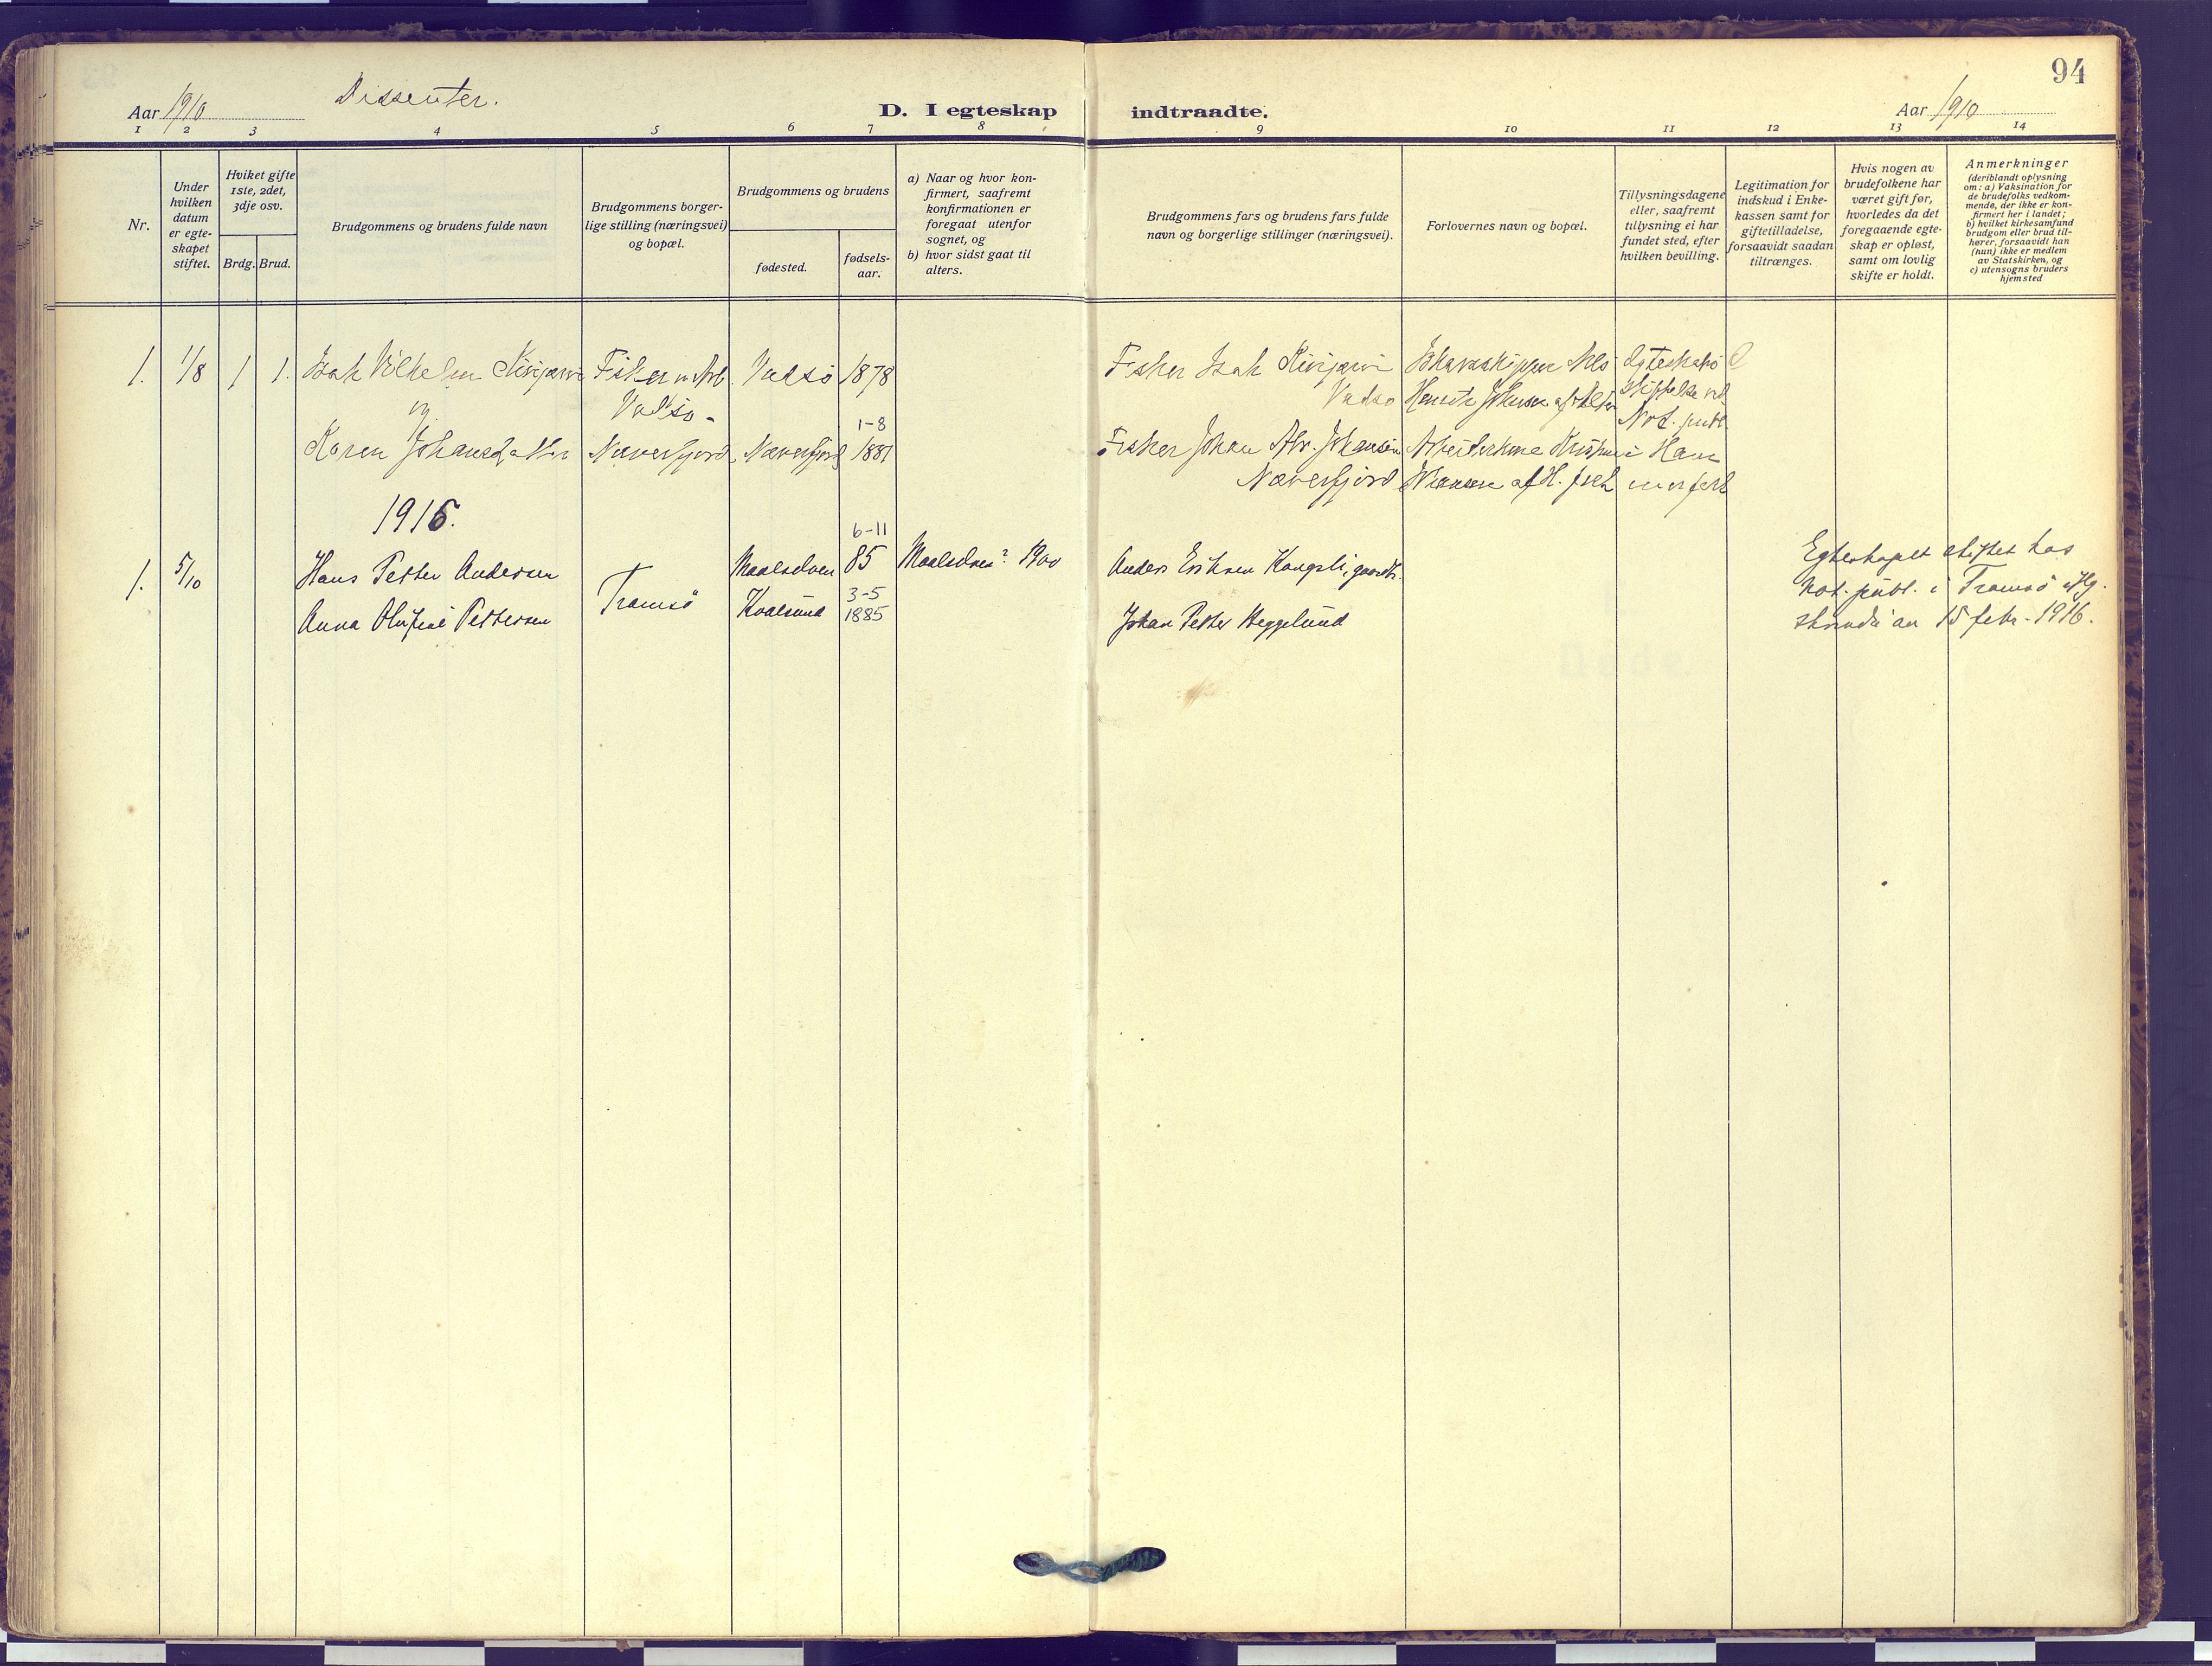 94
Aar 1910
Dissenter.
D. I egteskap
indtraadte.
Aar 1910
1 2 3 4 5 6 7 8 9 10 11 12 13 14
Nr.
Under
hvilken
datum
er egte-
skapet
stiftet.
Hviket gifte
1ste, 2det,
3dje osv.
Brdg. Brud.
Brudgommens og brudens fulde navn
Brudgommens borger-
lige stilling (næringsvei)
og bopæl.
Brudgommens og brudens
fødested.
fødsels-
aar.
a) Naar og hvor kon-
firmert, saafremt
konfirmationen er
foregaat utenfor
sognet, og
b) hvor sidst gaat til
alters.
Brudgommens fars og brudens fars fulde
navn og borgerlige stillinger (næringsvei).
Forlovernes navn og bopæl.
Tillysningsdagene
eller, saafremt
tillysning ei har
fundet sted, efter
hvilken bevilling.
Legitimation for
indskud i Enke-
kassen samt for
giftetilladelse,
forsaavidt saadan
tiltrænges.
Hvis nogen av
brudefolkene har
været gift før,
hvorledes da det
foregaaende egte-
skap er opløst,
samt om lovlig
skifte er holdt.
Anmerkninger
(deriblandt oplysning
om: a) Vaksination for
de brudefolks vedkom-
mende, der ikke er kon-
firmert her i landet;
b) hvilket kirkesamfund
brudgom eller brud til-
hører, forsaavidt han
(hun) ikke er medlem
av Statskirken, og
c) utensogns bruders
hjemsted
1. 1/8 1 1. Isak Vilhelm Kivijærvi Fisker Vadsø 1878 Fisker Isak Kivijærvi Egteskabs
Vadsø Vadsø
og 1-8 Not. publ.
Karen Johansdatter Næverfjord Næverfjord 1881 Fisker Johan Abr. Johansen i Ham
Næverfjord merfest
1916.
6-11
1. 5/10 Hans Petter Andersen Tromsø Maalselven 85 Maalselven? 1900 Anders Eriksen Kongsli, gaardbr.
3-5
Anna Olufine Pettersen Kvalsund 1885 Johan Petter Heggelund
Egteskapet stiftet hos
not. publ. i Tromsø iflg.
skrivelse av 15 febr. 1916.